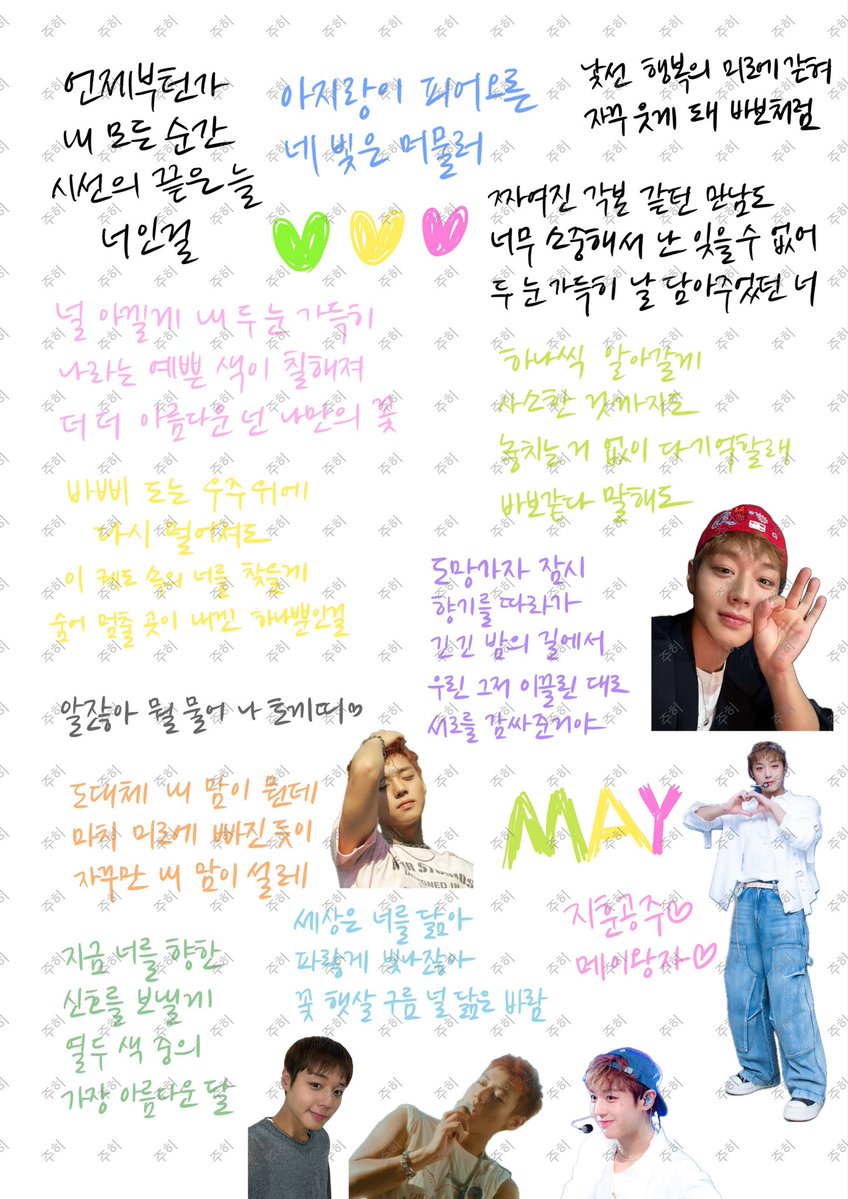 언제부턴가
내 모든 순간
시선의 끝은 늘
너인걸
아지랑이 피어오른
네 빛은 머물러
낯선 행복의 미로에 갇혀
자꾸 웃게 돼 바보처럼
짜여진 각본 같던 만남도
너무 소중해서 난 잊을 수 없어
두 눈 가득히 날 담아주었던 너
널 아낄게 내 두 눈 가득히
나라는 예쁜 색이 칠해져
더 더 아름다운 넌 나만의 꽃
하나씩 알아갈게
사소한 것까지도
놓치는 거 없이 다 기억할래
바보같다 말해도
바삐 도는 우주 위에
다시 멀어져도
이 궤도 속의 너를 찾을게
숨어 멈출 곳이 내겐 하나뿐인걸
도망가자 잠시
향기를 따라가
긴긴 밤의 길에서
우린 그저 이끌린 대로
서로를 감싸준거야
알잖아 뭘 물어 나 토깨띠♡
도대체 내 맘이 뭔데
마치 미로에 빠진듯이
자꾸만 내 맘이 설레
MAY
지훈공주♡
메이왕자♡
세상은 너를 닮아
파랗게 빛나잖아
꽃 햇살 구름 널 닮은 바람
지금 너를 향한
신호를 보낼게
열두 색 중의
가장 아름다운 달
주히